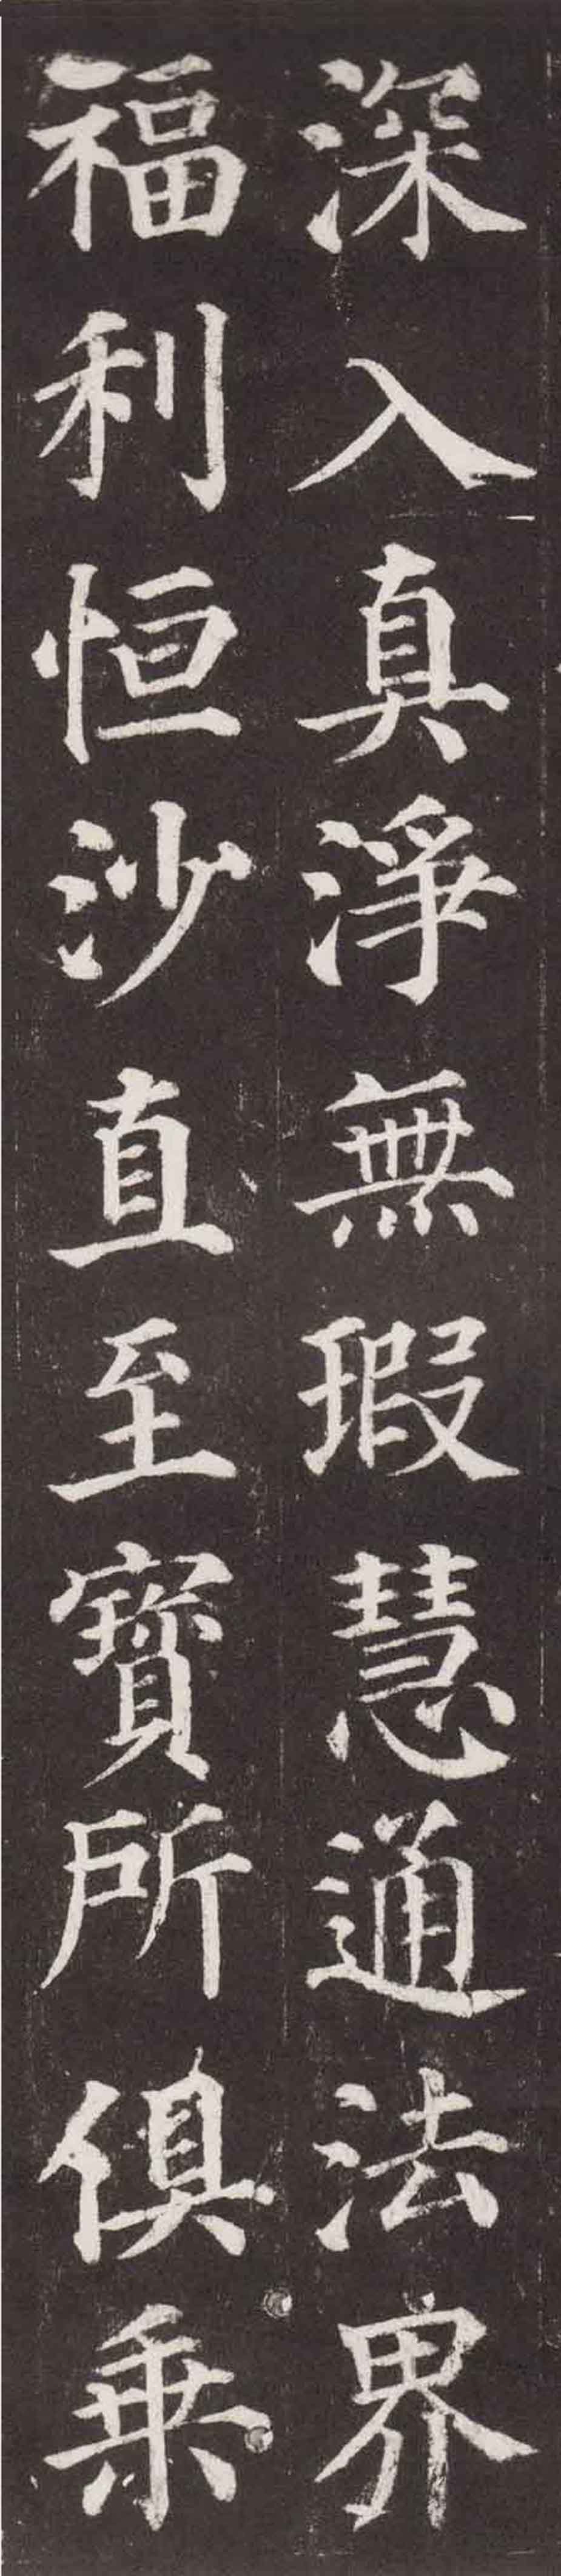 深入真淨無瑕慧通法界
福利恒沙直至寶所俱乗